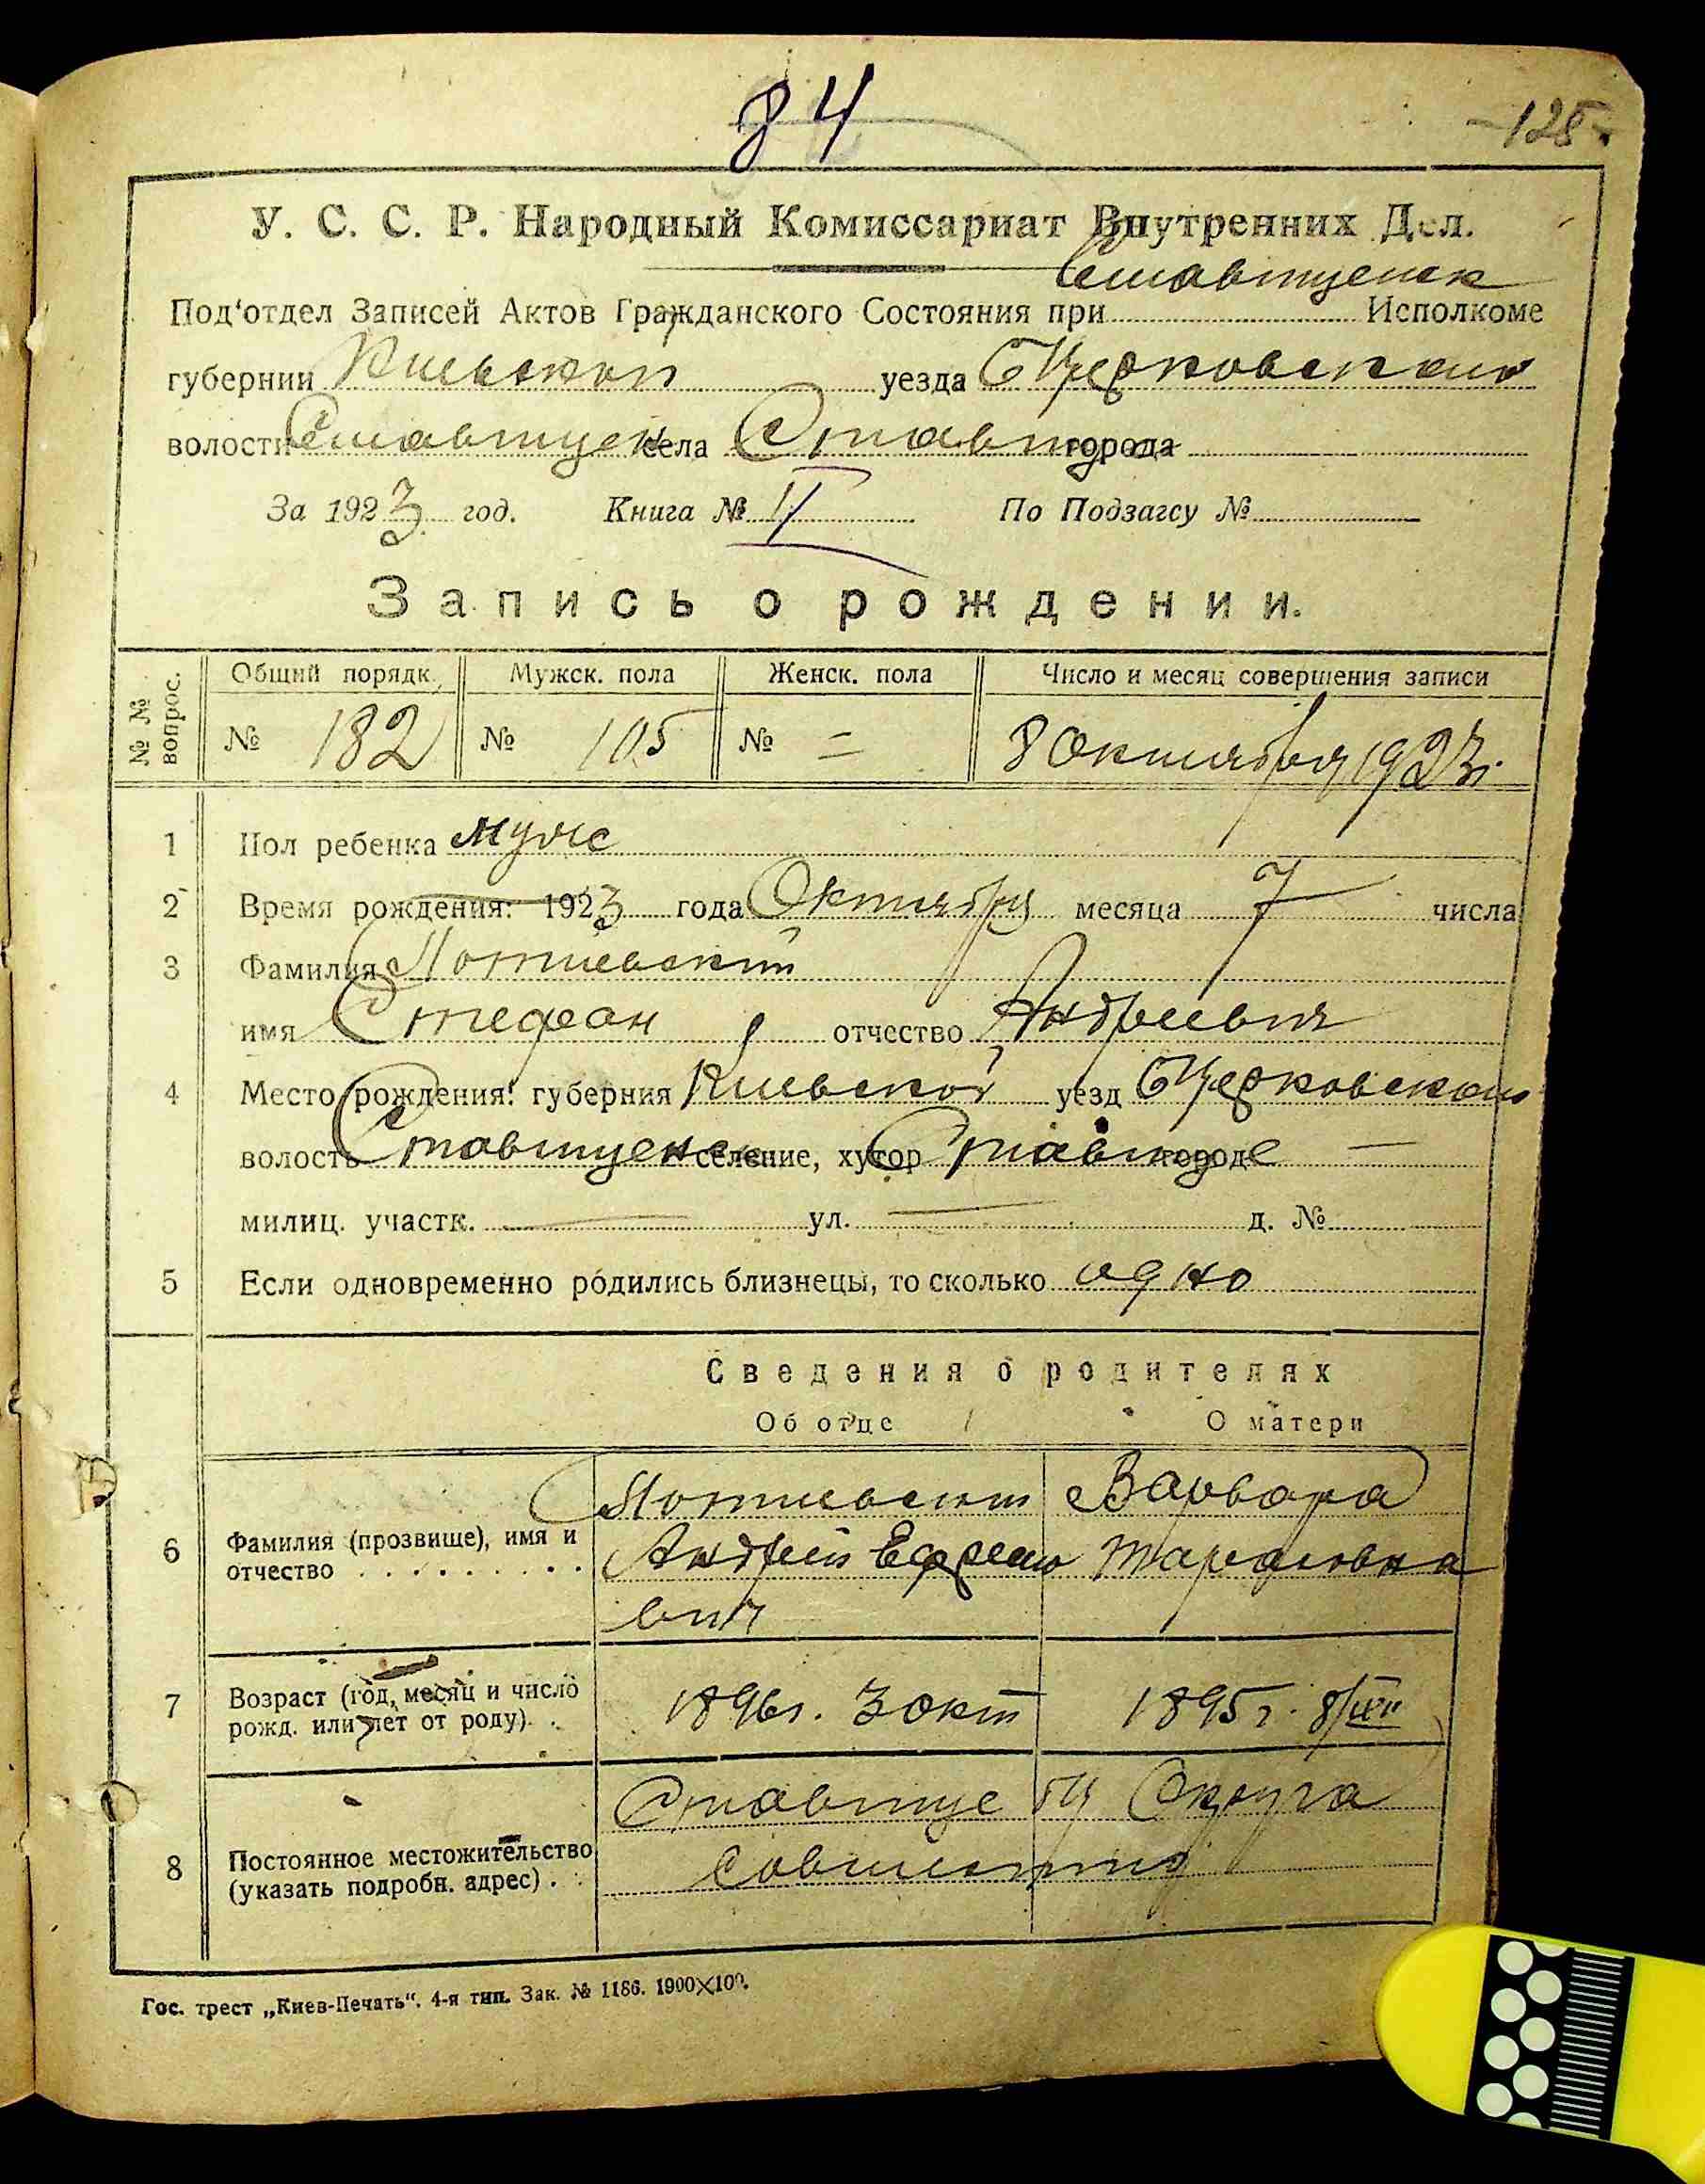 84
-125-
У. С. С. Р. Народный Комиссариат Внутренних Дел.
Ставищенск
Под'отдел Записей Актов Гражданского Состояния при Исполкоме
губернии Киевской уезда БЦерковского
волости Ставищен села Ставище города
За 1923 год. Книга № II По Подзагсу №
Запись о рождении.
№ № вопрос. Общий порядк. Мужск. пола Женск. пола Число и месяц совершения записи
№ 182 № 105 № = 8 Октября 1923г.
1 Пол ребенка мужс
2 Время рождения: 1923 года Октября месяца 7 числа
3 Фамилия Мотиевский
имя Стефан отчество Андреевич
4 Место рождения: губерния Киевской уезд БЦерковского
волость Ставищенск селение, хутор Ставище городе —
милиц. участк. — ул. — д. №
5 Если одновременно родились близнецы, то сколько одно
Сведения о родителях
Об отце О матери
6 Фамилия (прозвище), имя и отчество
Мотиевский Варвара
Андрей Ефремо Тарасовна
вич
7 Возраст (год, месяц и число рожд. или лет от роду).
1896г. 3 окт 1895г. 8/XII
8 Постоянное местожительство (указать подробн. адрес).
Ставище БЦ Округа
Совместно
Гос. трест „Киев-Печать“. 4-я тип. Зак. № 1186. 1900×100.